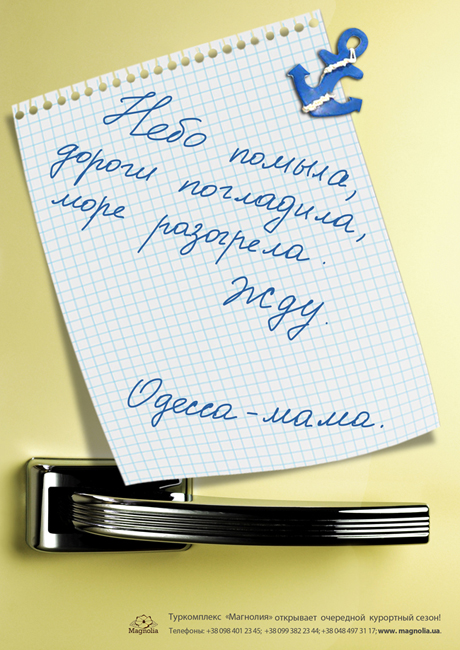 Небо помыла,
дороги погладила,
море разогрела.
Жду.
Одесса-мама.
Magnolia
Туркомплекс «Магнолия» открывает очередной курортный сезон!
Телефоны: +38 098 401 23 45; +38 099 382 23 44; +38 048 497 31 17; www. magnolia.ua.